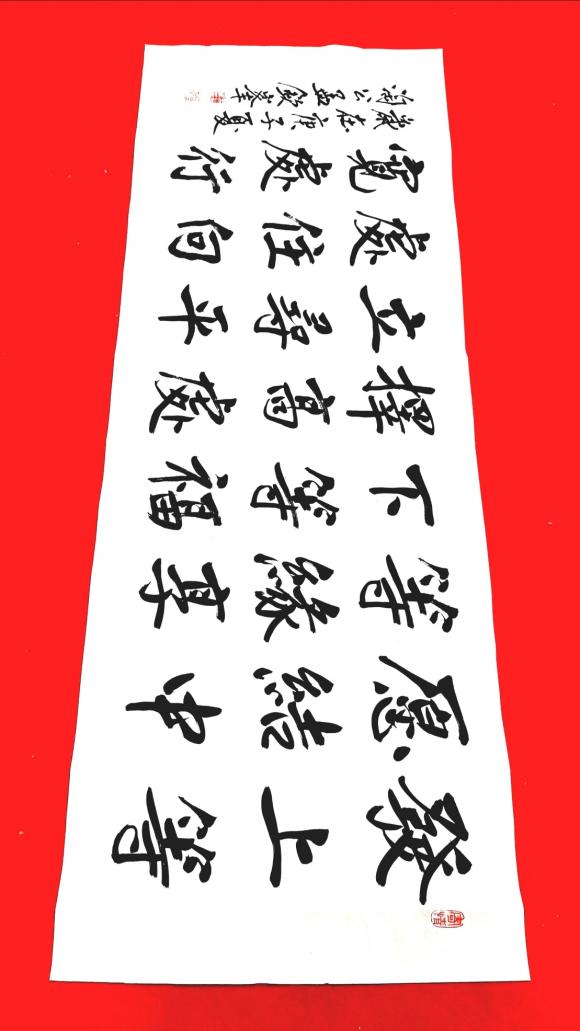 發上等
愿結中
等緣享
下等福
擇高處
立尋平
處住向
寬處行
歲在庚子夏